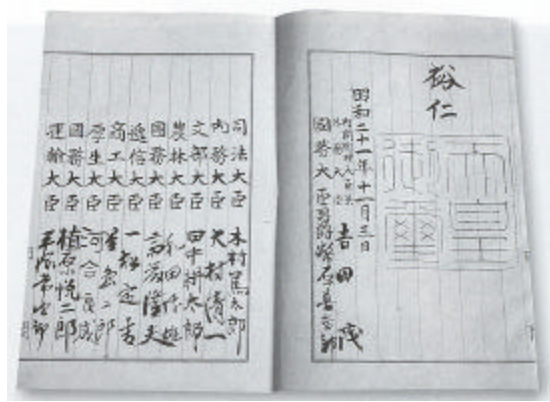 裕仁
天皇
御璽
昭和二十一年十一月三日
内閣總理大臣兼
外務大臣 吉田茂
國務大臣 男爵 幣原喜重郎
司法大臣 木村篤太郎
内務大臣 大村清一
文部大臣 田中耕太郎
農林大臣 和田博雄
國務大臣 斎藤隆夫
逓信大臣 一松定吉
商工大臣 星島二郎
厚生大臣 河合良成
國務大臣 植原悦二郎
運輸大臣 平塚常次郎